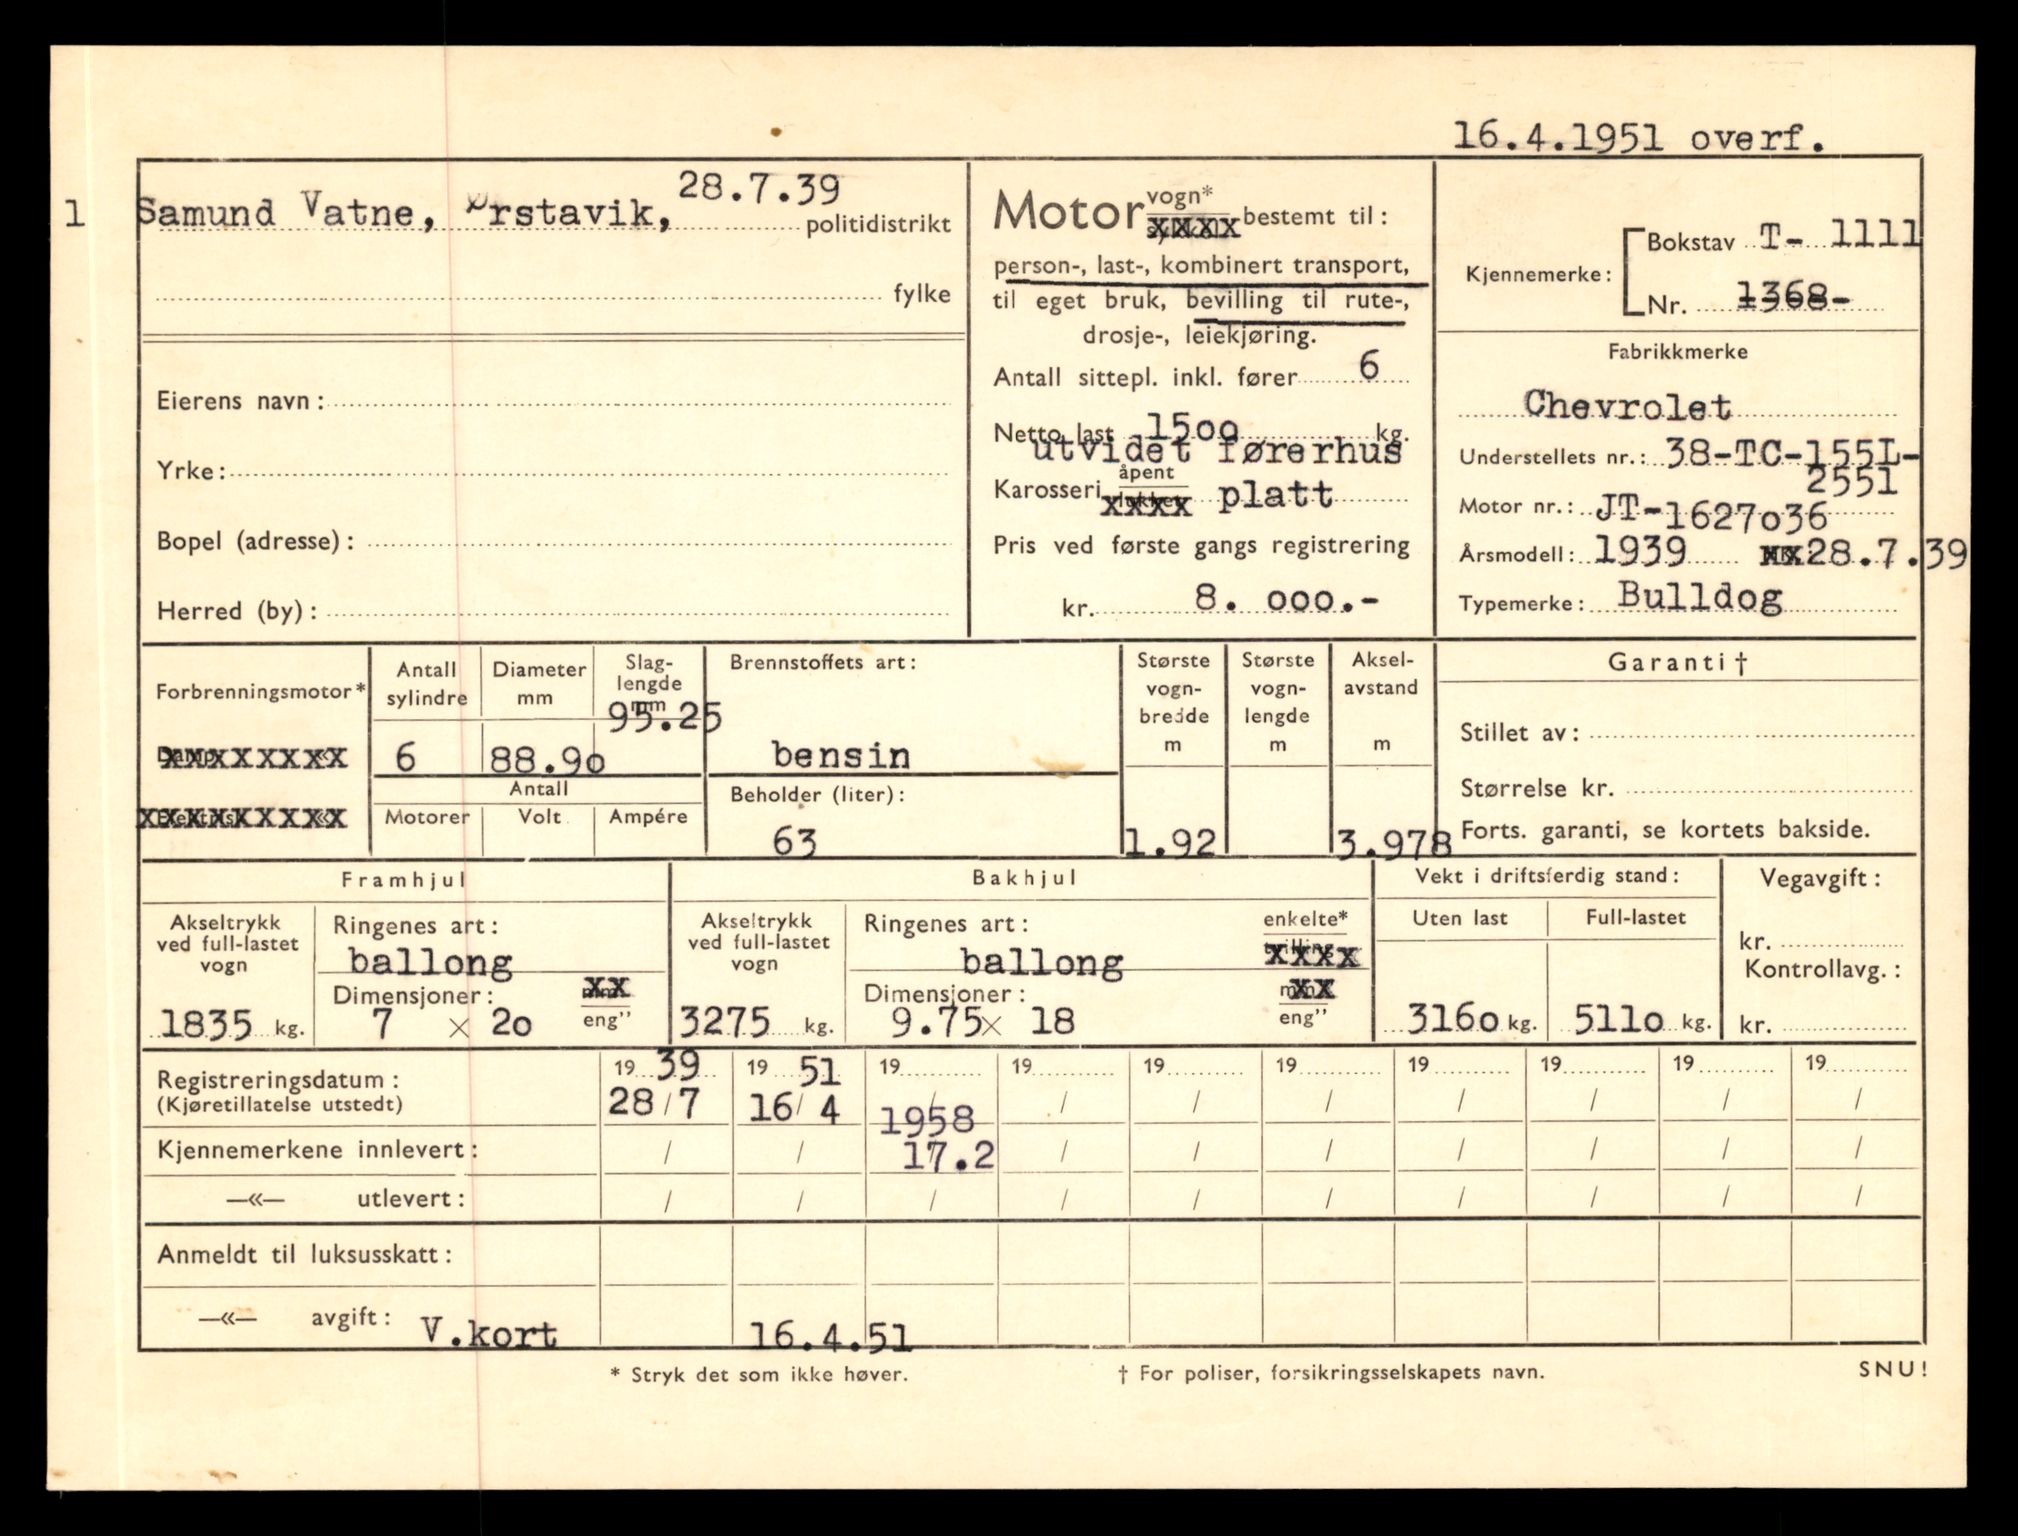 16.4.1951 overf.
1 Samund Vatne, Ørstavik, 28.7.39 politidistrikt
fylke
Eierens navn:
Yrke:
Bopel (adresse):
Herred (by):
Motor vogn* xxxx bestemt til:
person-, last-, kombinert transport,
til eget bruk, bevilling til rute-,
drosje-, leiekjøring.
Antall sittepl. inkl. fører 6
Netto last 15oo kg.
utvidet førerhus
Karosseri åpent xxxx platt
Pris ved første gangs registrering
kr. 8. ooo.-
Kjennemerke: Bokstav T- 1111
Nr. 1368-
Fabrikkmerke
Chevrolet
Understellets nr.: 38-TC-155L-
2551
Motor nr.: JT-1627o36
Årsmodell: 1939 xx28.7.39
Typemerke: Bulldog
Forbrenningsmotor*
xxxxxxxx «
xxxxxxxxx «
Antall sylindre
6
Diameter mm
88.9o
Slag-lengde mm
95.25
Antall
Motorer Volt Ampére
Brennstoffets art:
bensin
Beholder (liter):
63
Største vogn-bredde m
1.92
Største vogn-lengde m
Aksel-avstand m
3.978
Garanti†
Stillet av:
Størrelse kr.
Forts. garanti, se kortets bakside.
Framhjul
Akseltrykk
ved full-lastet
vogn
1835 kg.
Ringenes art:
ballong
Dimensjoner: xx
7 × 2o eng”
Bakhjul
Akseltrykk
ved full-lastet
vogn
3275 kg.
Ringenes art: enkelte*
ballong xxxx
Dimensjoner: xx
9.75 × 18 eng”
Vekt i driftsferdig stand:
Uten last Full-lastet
316o kg. 511o kg.
Vegavgift:
kr.
Kontrollavg.:
kr.
Registreringsdatum: 19 39 19 51 19 19 19 19 19 19 19 19
(Kjøretillatelse utstedt) 28/7 16/4 / / / / / / / /
1958
Kjennemerkene innlevert: / / 17.2 / / / / / / /
—«— utlevert: / / / / / / / / / /
Anmeldt til luksusskatt:
—«— avgift: V.kort 16.4.51
* Stryk det som ikke høver. † For poliser, forsikringsselskapets navn. SNU!